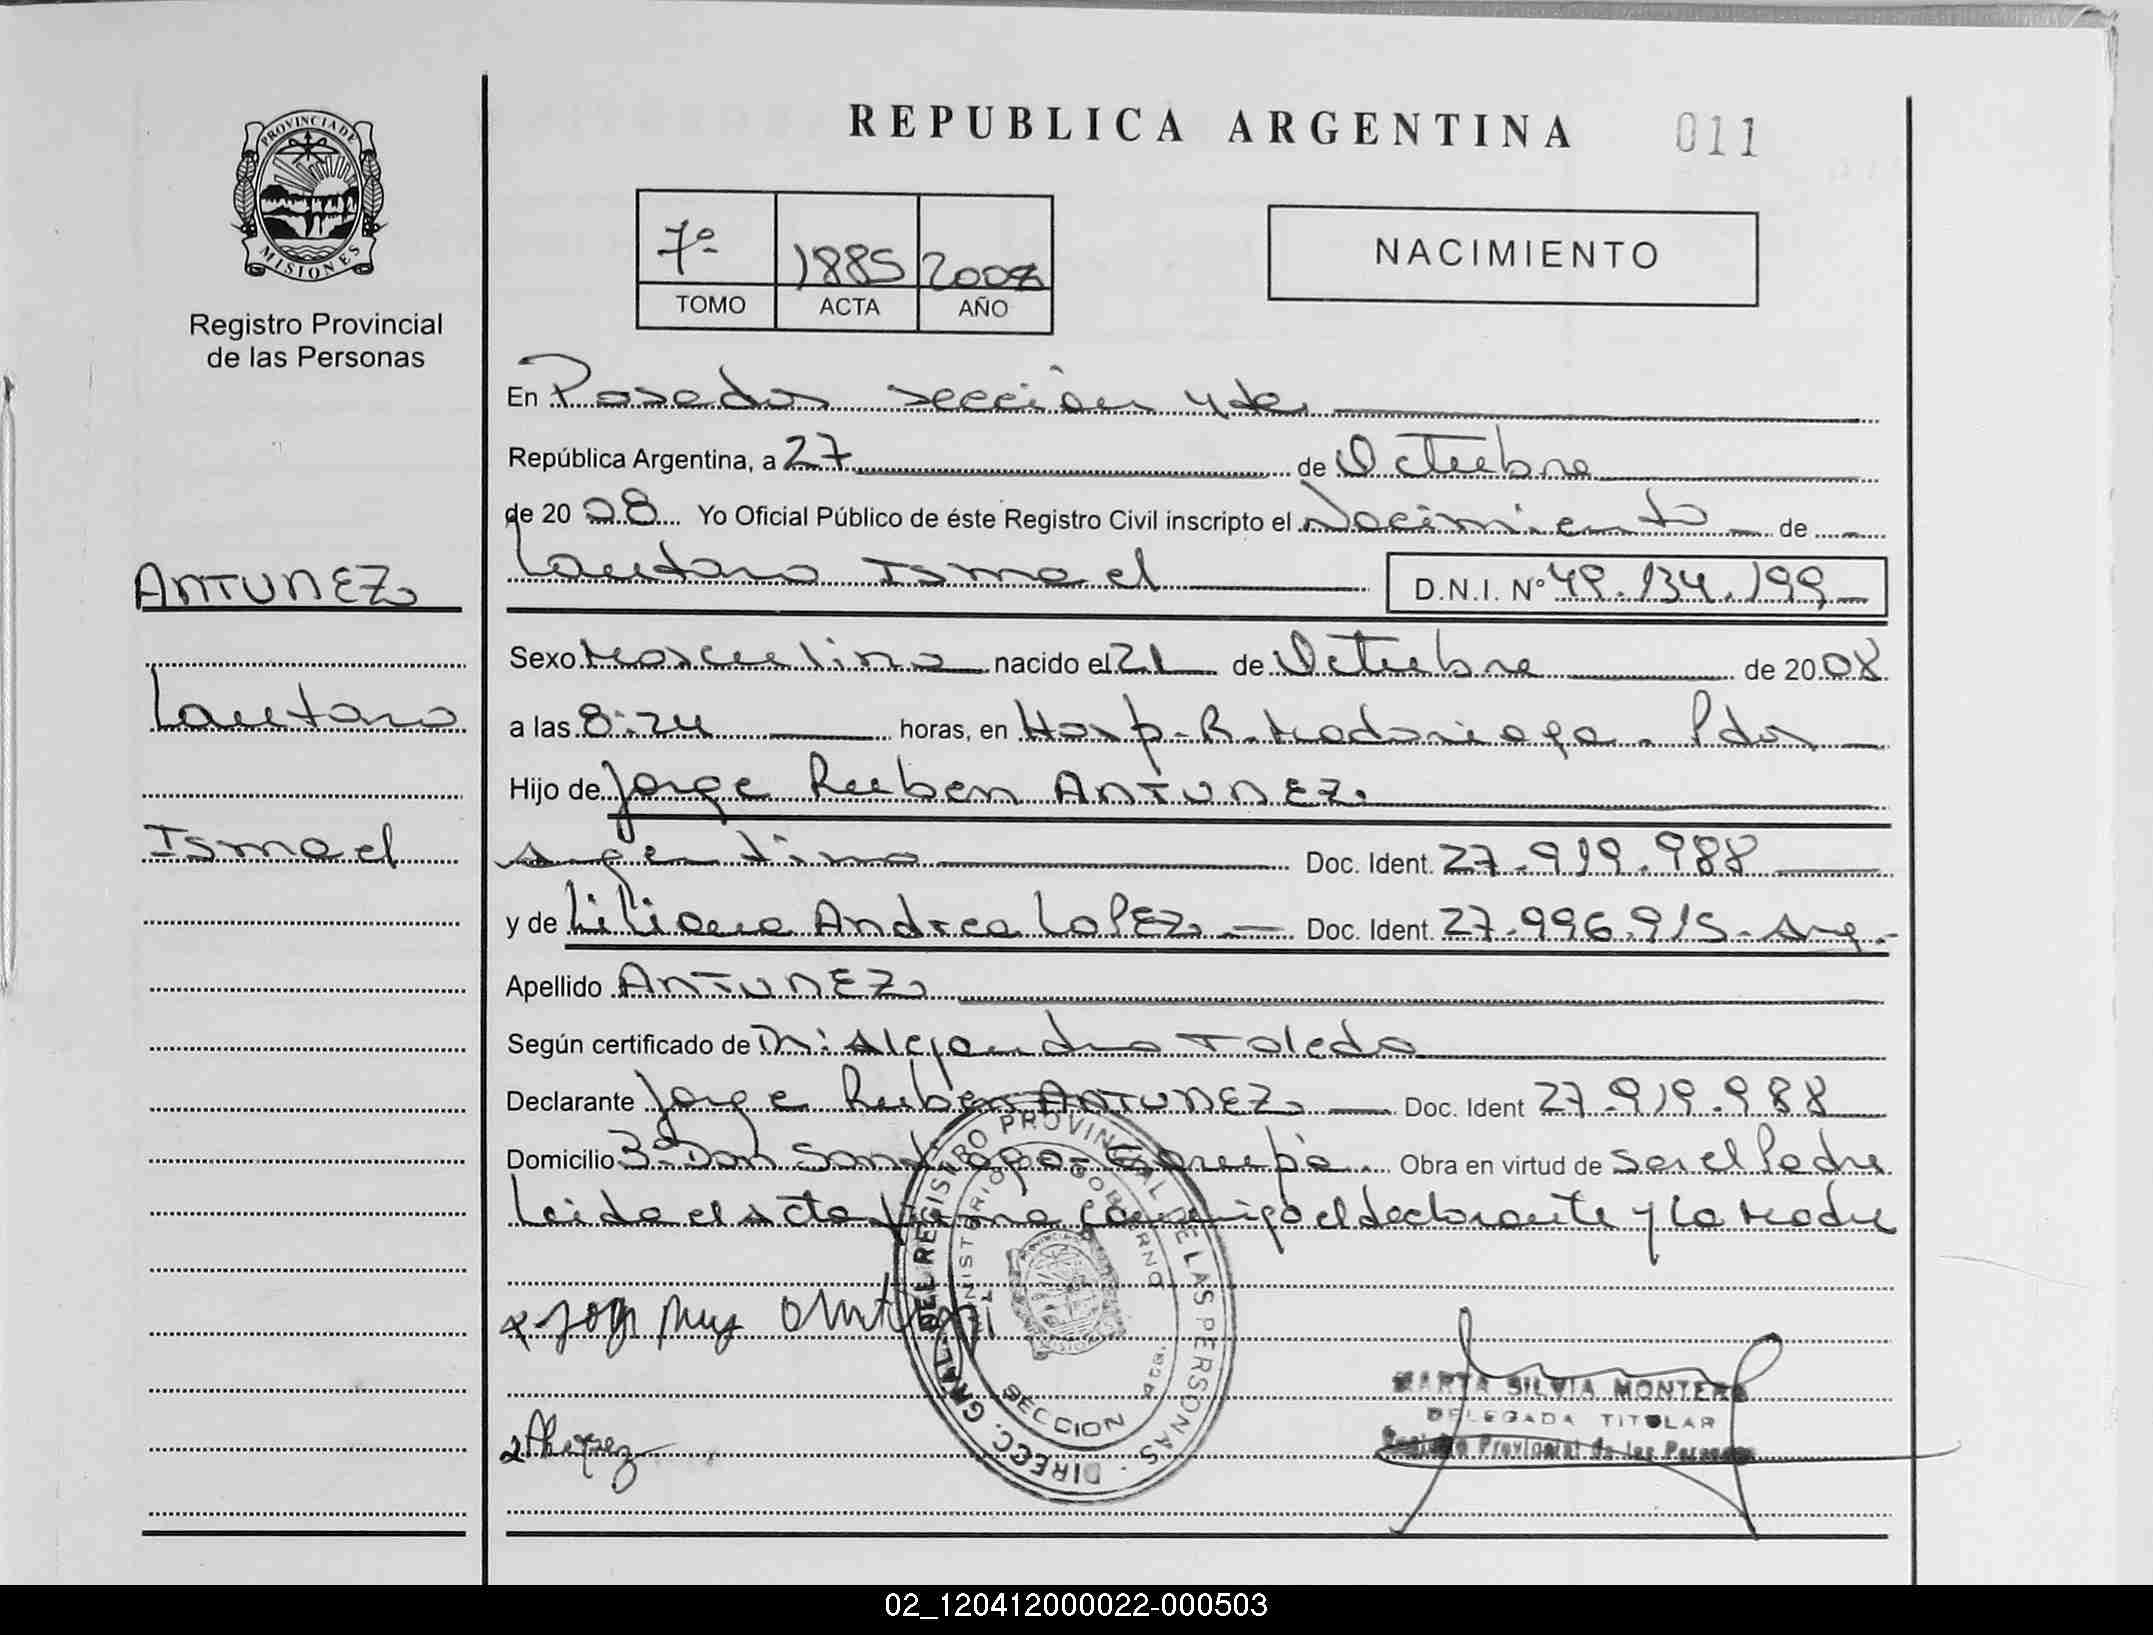 REPUBLICA ARGENTINA 011
PROVINCIA DE
MISIONES
Registro Provincial
de las Personas
7º 1885 2008
TOMO ACTA AÑO
NACIMIENTO
En Posadas sección 4ta.
República Argentina, a 27 de Octubre
de 20 08 Yo Oficial Público de éste Registro Civil inscripto el Nacimiento de
Lautaro Ismael D.N.I. Nº 49.134.199
ANTUNEZ
Lautaro
Ismael
Sexo Masculino nacido el 21 de Octubre de 20 08
a las 8:24 horas, en Hosp. R. Madariaga - Pdas
Hijo de Jorge Ruben ANTUNEZ.
Argentino Doc. Ident. 27.919.988
y de Liliana Andrea LOPEZ Doc. Ident. 27.996.915 - Arg.-
Apellido ANTUNEZ
Según certificado de Alejandro Toledo
Declarante Jorge Ruben ANTUNEZ Doc. Ident 27.919.988
Domicilio Bº Don Santiago - Garupá Obra en virtud de ser el Padre
Leida el acta firma conmigo el declarante y la Madre
DIRECC. GRAL. DEL REGISTRO PROVINCIAL DE LAS PERSONAS
MINISTERIO GOBIERNO
SECCION 4ta.
MARTA SILVIA MONTERO
DELEGADA TITULAR
Registro Provincial de las Personas
02_120412000022-000503